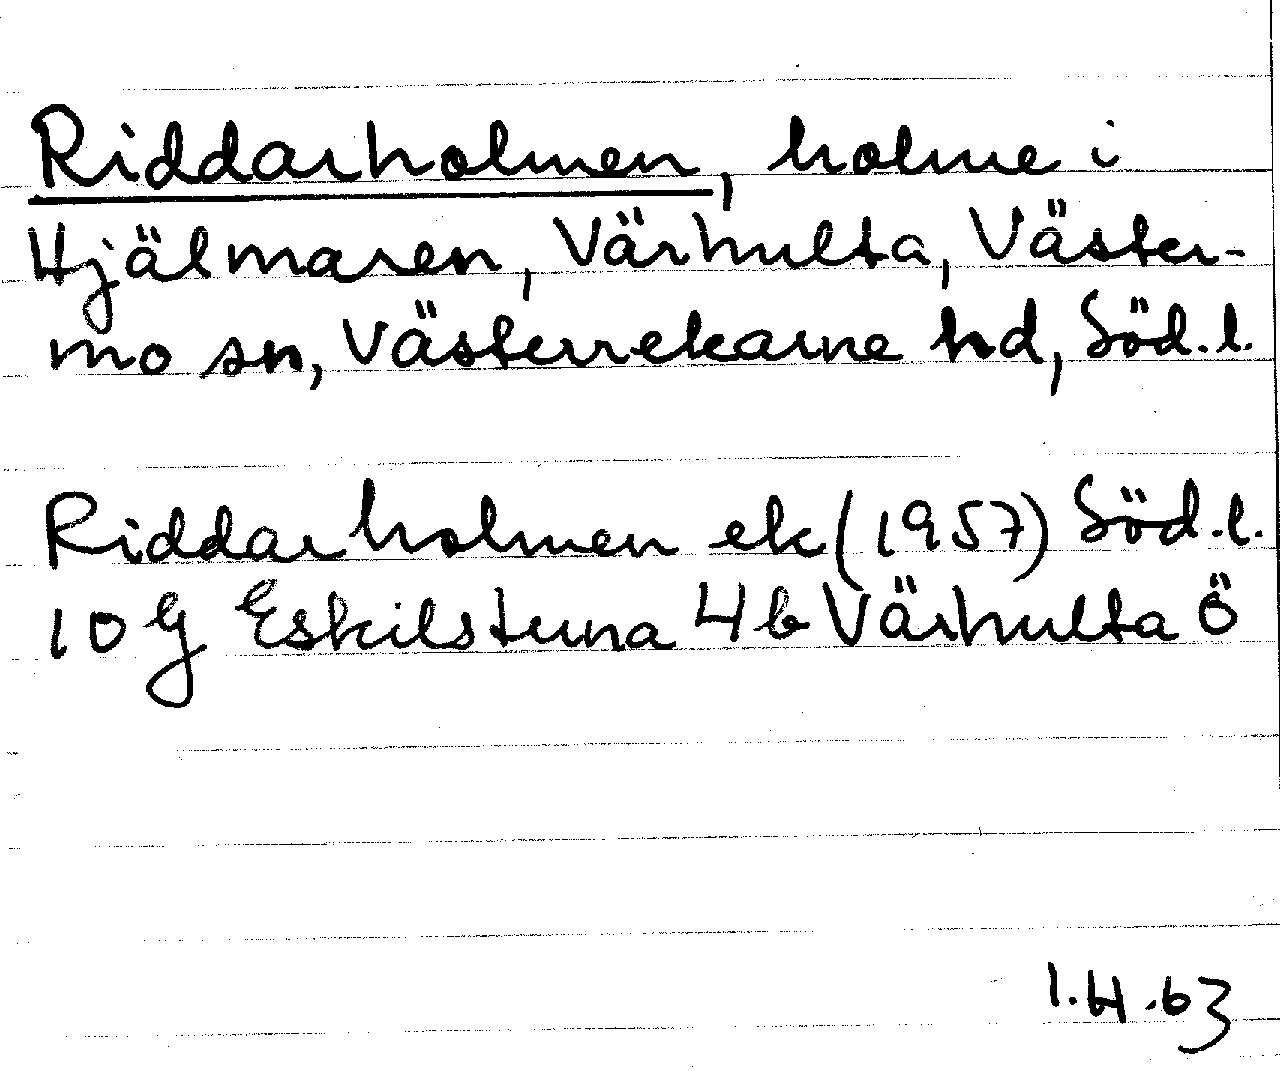 Riddarholmen, holme i
Hjälmaren, Värhulta, Väster-
mo sn, Västerrekarne hd, Söd.l.
Riddarholmen ek (1957) Söd.l.
10 G Eskilstuna 4b Värhulta Ö
I.H.63